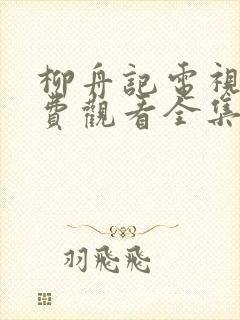 柳舟記電視
費觀看全集
羽飛飛